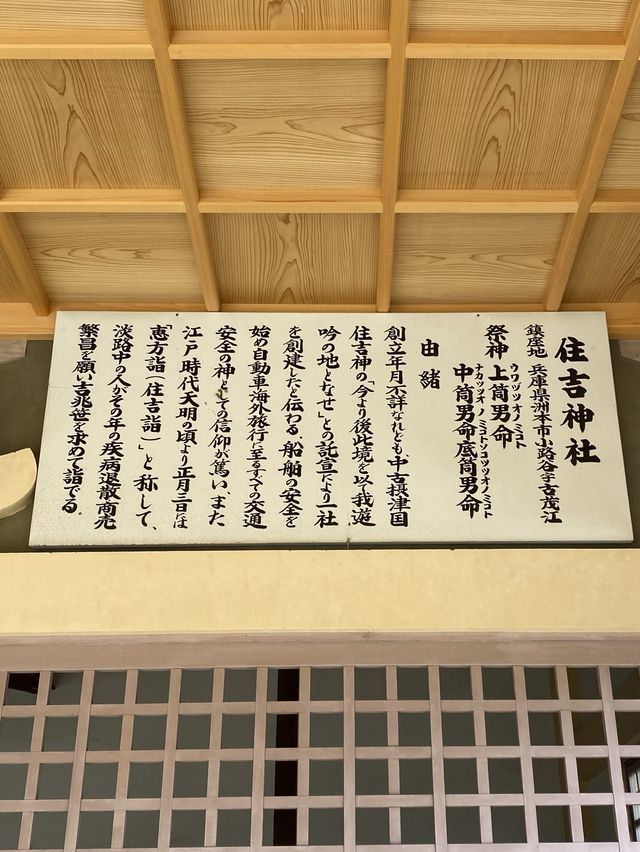 住吉神社
鎮座地 兵庫県洲本市小路谷字古茂江
祭神 上筒男命
ウワヅツオノミコト
中筒男命底筒男命
ナカツツオノミコトソコツツオノミコト
由緒
創立年月不詳なれども、中古摂津国
住吉神の「今より後此境を以て我遊
吟の地となせ」との託宣により一社
を創建したと伝わる。船舶の安全を
始め自動車海外旅行に至るすべての交通
安全の神としての信仰が篤い、また
江戸時代天明の頃より正月三日には
「恵方詣(住吉詣)」と称して、
淡路中の人がその年の疾病退散商売
繁昌を願い吉兆笹を求めて詣でる。